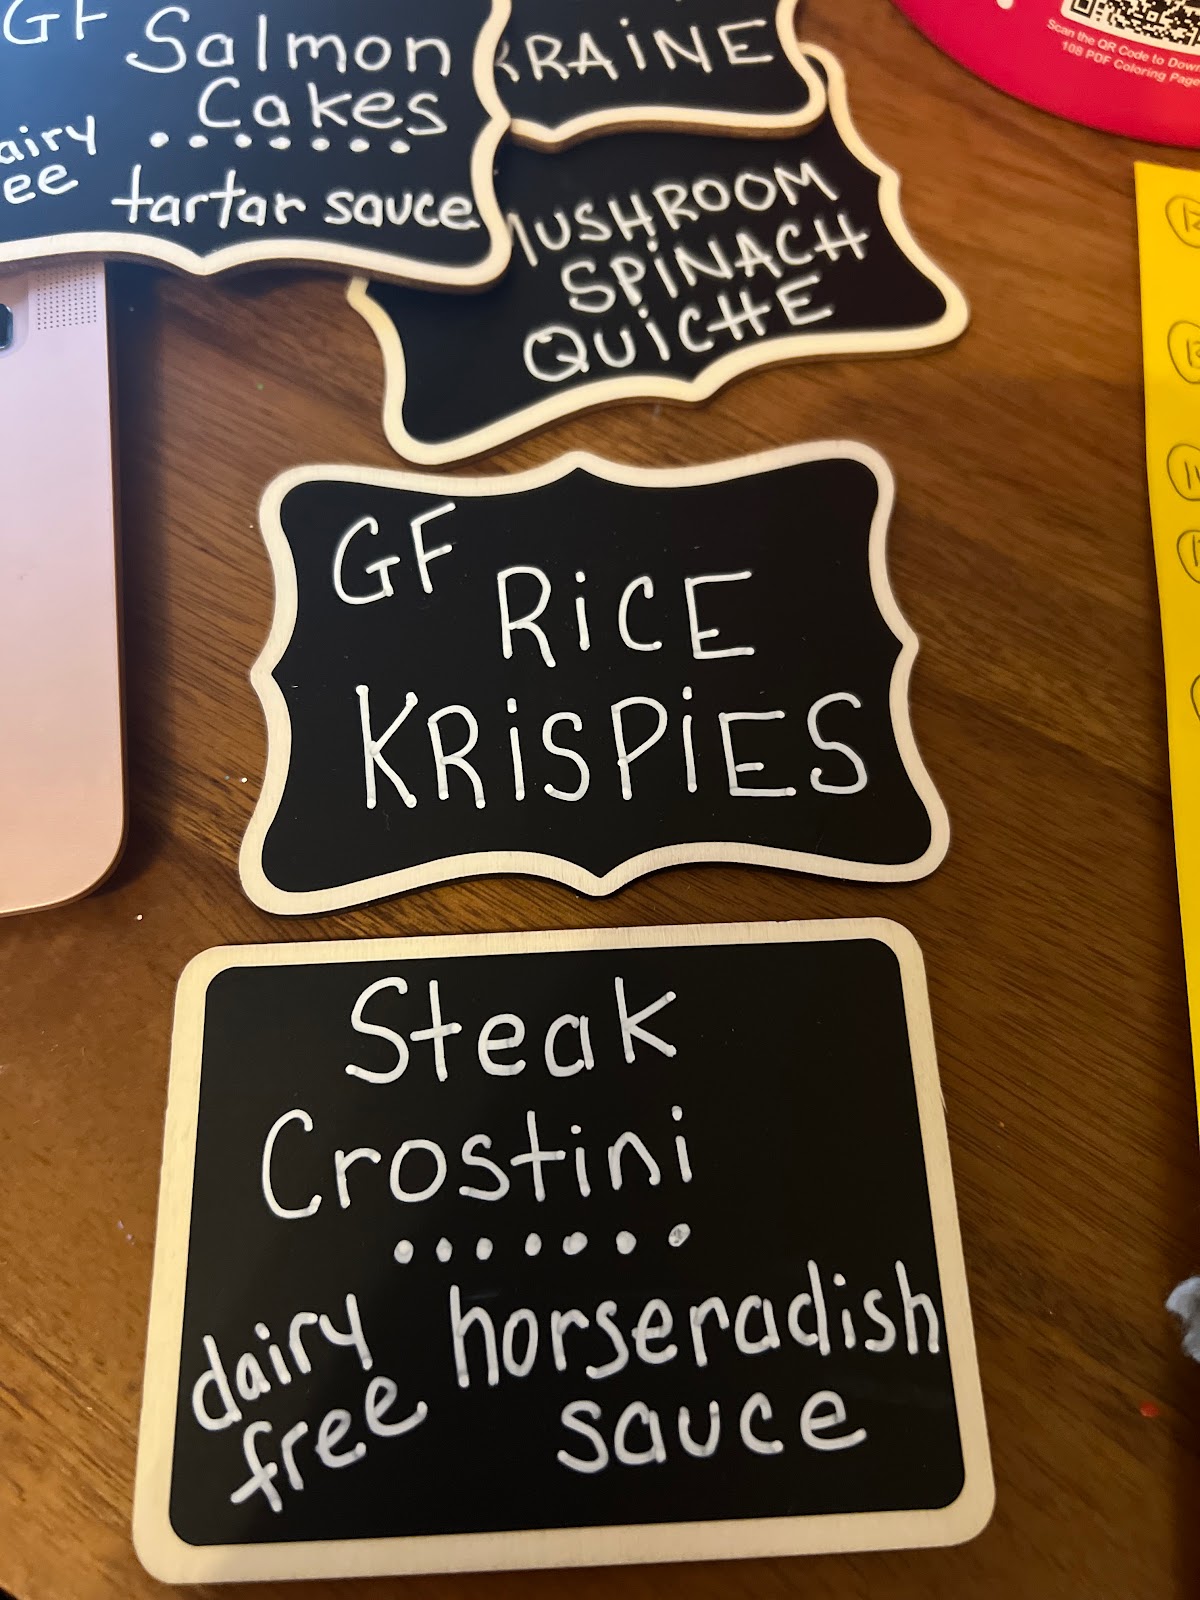 GF Salmon
Cakes
tartar sauce
RAiNE
MUSHROOM
SPiNACH
QUiCHE
Scan the QR Code to
108 PDF Coloring
GF
RiCE
KRiSPiES
Steak
Crostini
dairy
free
horseradish
sauce